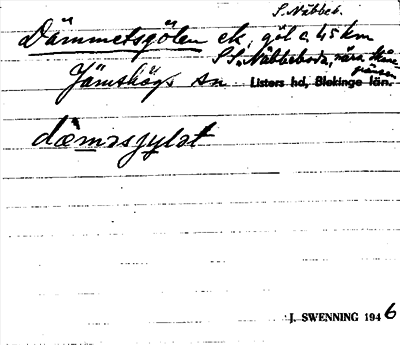 S. Näbbeb.
Dämmetsgölen ek, göl c. 4,5 km
S S. Näbbeboda, nära Skåne
gränsen
Jämshögs sn Listers hd, Blekinge län.
dæmasjylat
J. SWENNING 1946